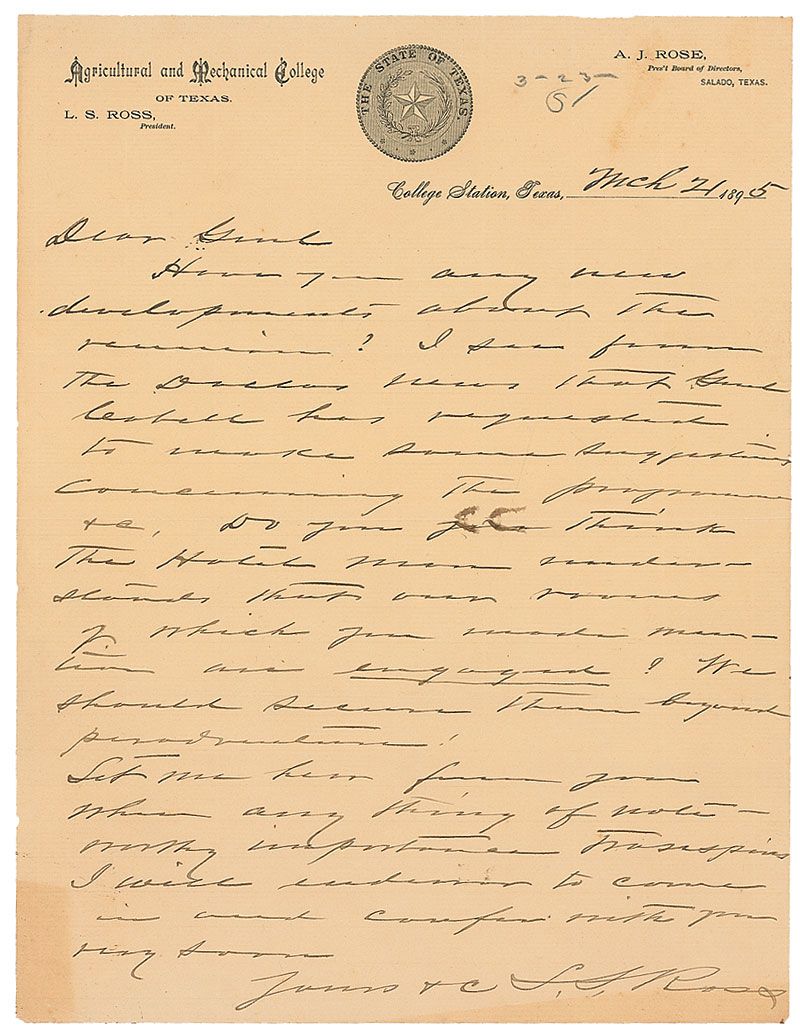 Agricultural and Mechanical College
OF TEXAS.
L. S. ROSS,
President.
THE STATE OF TEXAS.
A. J. ROSE,
Pres't Board of Directors,
SALADO, TEXAS.
3-23-
College Station, Texas, Mch 21 1895
Dear Genl
Have you any new
developments about the
reunion? I see from
the Dallas News that Genl
Cabell has requested
to make some suggestions
concerning the programme
&c, Do you you think
the Hotel man under-
stands that our rooms
of which you made men-
tion are engaged? We
should secure them beyond
peradventure!
Let me hear from you
when any thing of note-
worthy importance transpires
I will endeavor to come
in and confer with you
very soon
Yours &c L. S. Ross